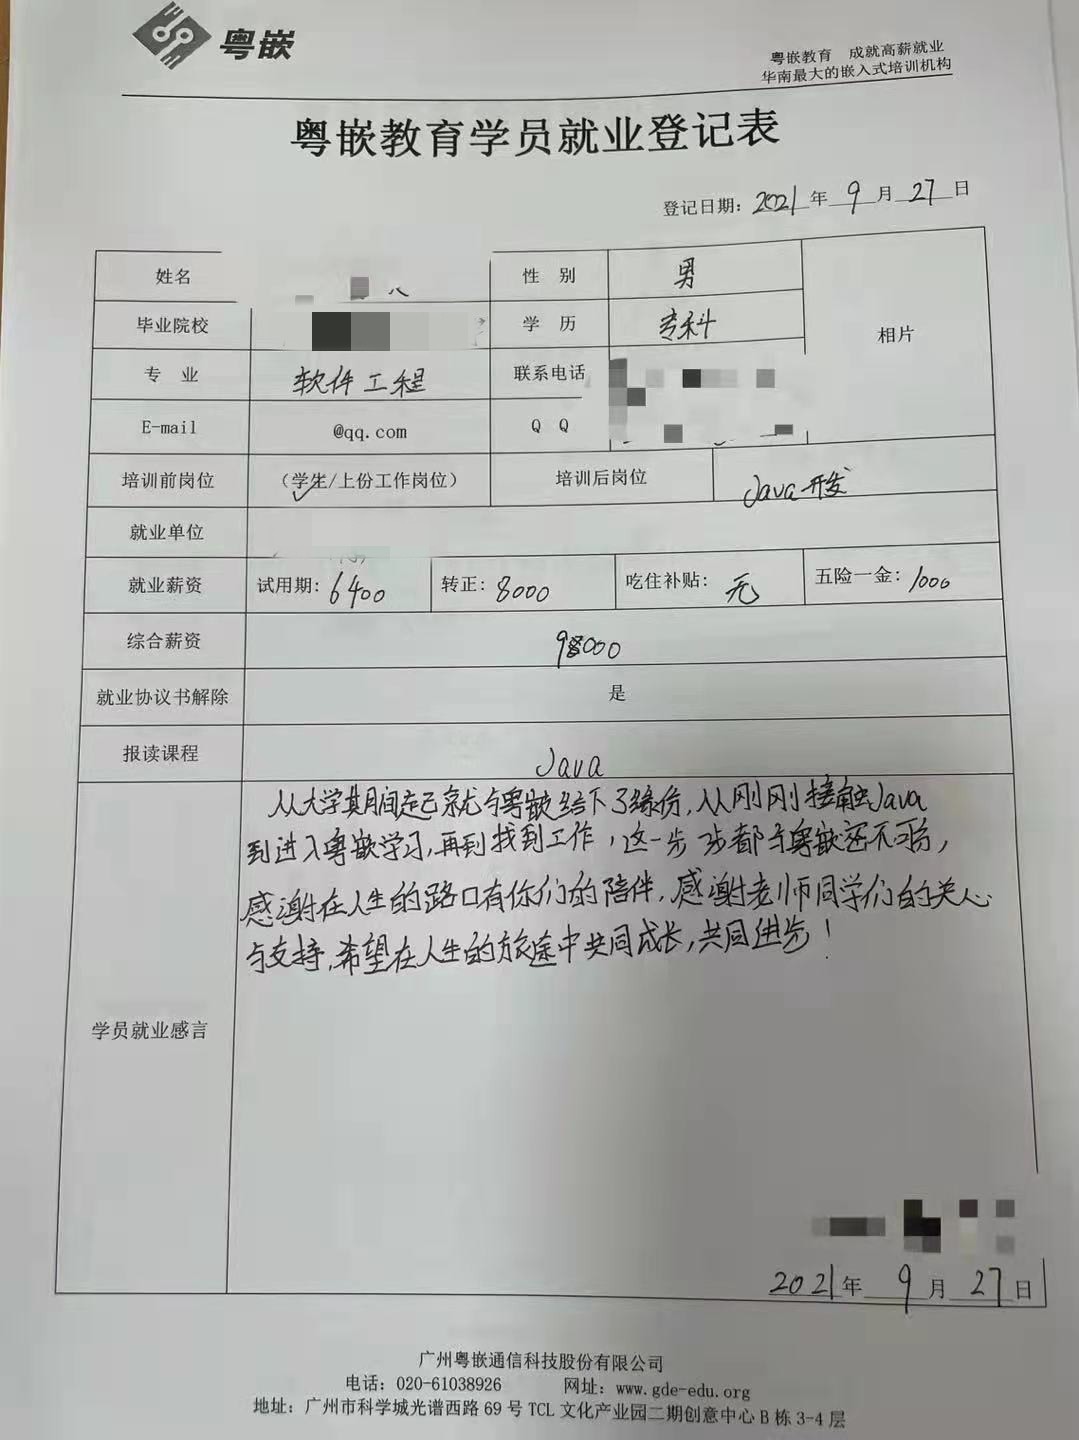 粤嵌
粤嵌教育 成就高薪就业
华南最大的嵌入式培训机构
粤嵌教育学员就业登记表
登记日期：2021年9月27日
姓名 性 别 男
相片
毕业院校 学 历 专科
专 业 软件工程 联系电话
E-mail @qq.com Q Q
培训前岗位 （学生/上份工作岗位） 培训后岗位 Java开发
就业单位
就业薪资 试用期：6400 转正：8000 吃住补贴：无 五险一金：1000
综合薪资
就业协议书解除 是
报读课程 Java
从大学其期间起就与粤嵌结下了缘份，从刚刚接触Java
到进入粤嵌学习，再到找到工作，这一步步都与粤嵌密不可分，
感谢在人生的路口有你们的陪伴，感谢老师同学们的关心
与支持，希望在人生的旅途中共同成长，共同进步！
学员就业感言
2021年9月27日
广州粤嵌通信科技股份有限公司
电话：020-61038926 网址：www.gde-edu.org
地址：广州市科学城光谱西路69号TCL文化产业园二期创意中心B栋3-4层